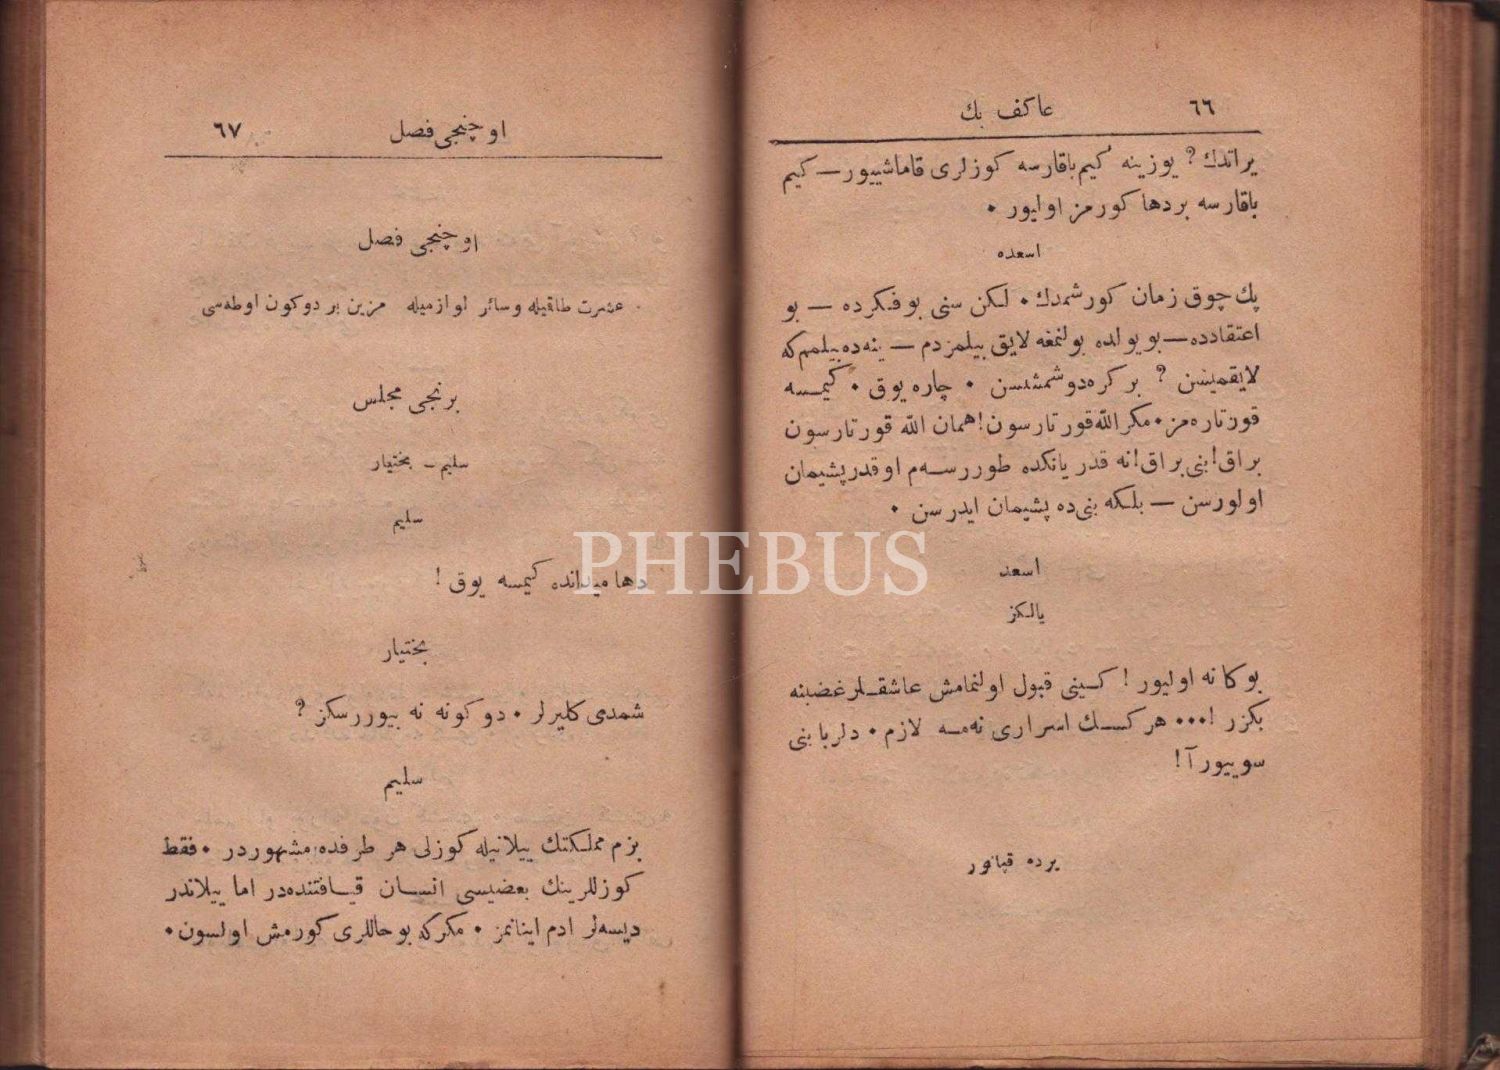 ٦٦
عاكف بك
يراتدك ? يوزينه كيم باقارسه كوزلرى قاماشييور — كيم
باقارسه بردها كورمز اوليور .
اسعده
پك چوق زمان كورشمدك . لكن سنى بو فكرده — بو
اعتقادده — بو يولده بولنمغه لايق بيلمزدم — ينه ده بيلمم كه
لايقميسن ? بر كره دوشمشسن . چاره يوق . كيمسه
قورتاره مز . مكر الله قورتارسون ! همان الله قورتارسون
براق ! بنى براق ! نه قدر يانكده طوررسه م او قدر پشيمان
اولورسن — بلكه بنى ده پشيمان ايدرسن .
اسعد
يالكز
بوكا نه اوليور ! كينى قبول اولنمامش عاشقلر غضبنه
بكزر ! ... هر كسك اسرارى نه مه لازم . دلربا بنى
سوييور آ !
پرده قپانور
اوچنجى فصل
٦٧
اوچنجى فصل
عشرت طاقيله وسائر لوازميله مزين بر دوكون اوطه سى
برنجى مجلس
سليم — بختيار
سليم
دها ميدانده كيمسه يوق !
بختيار
شمدى كليرلر . دوكونه نه بيوررسكز ?
سليم
بزم مملكتك ييلانيله كوزلى هر طرفده مشهوردر . فقط
كوزللرينك بعضيسى انسان قيافتنده در اما ييلاندر
ديسه لر ادم اينانمز . مكركه بو حاللرى كورمش اولسون .
PHEBUS